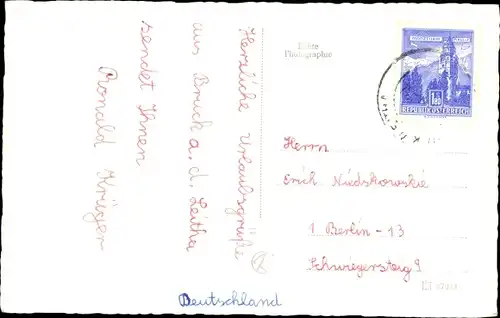 Herzliche Urlaubsgrüße
aus Bruck a. d. Leitha
sendet Ihnen
Ronald Krüger
Echte
Photographie
REPUBLIK ÖSTERREICH
1.80
Herrn
Erich Niedskowskie
1 Berlin - 13
Schwiegersteg 9
Deutschland